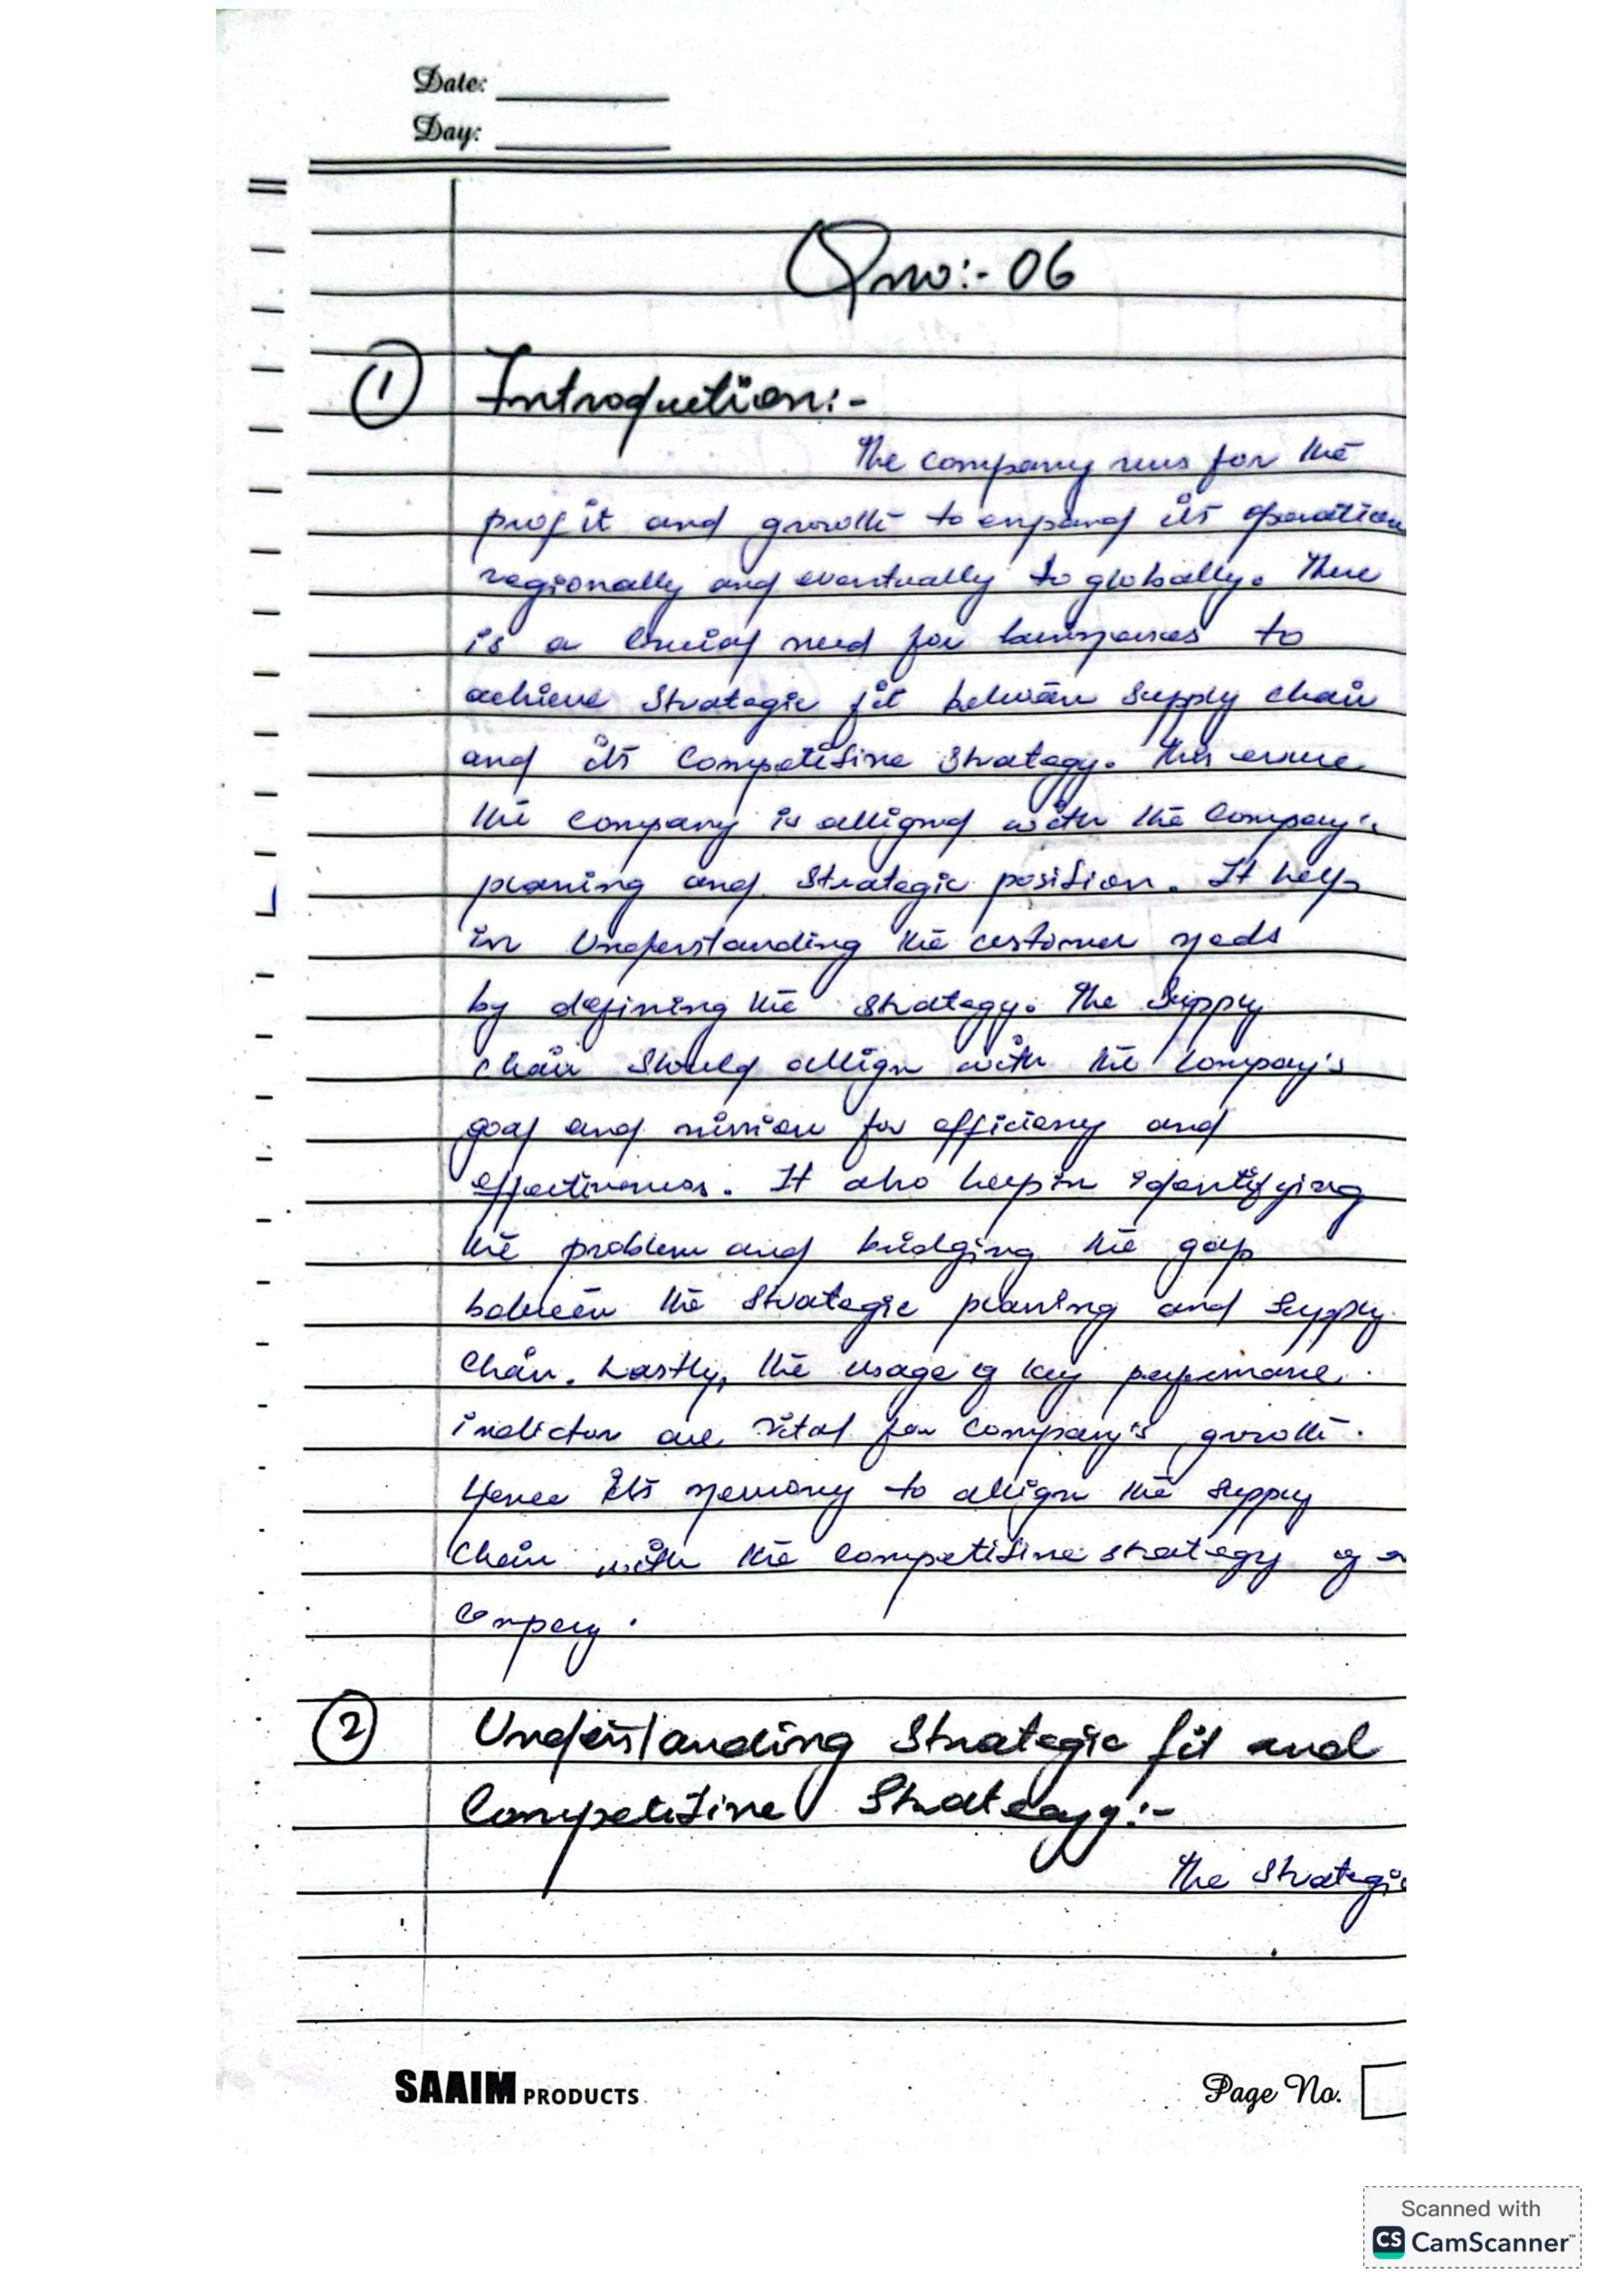 Date:
Day:
Qno:- 06
1 Introduction:-
The company runs for the
profit and growth to expand its operation
regionally and eventually to globally. There
is a crucial need for businesses to
achieve strategic fit between supply chain
and its competitive strategy. This ensure
the company is alligned with the company's
planing and strategic position. It help
in understanding the customer needs
by defining the strategy. The supply
chain should allign with the company's
goal and mission for efficiency and
effectiveness. It also help in identifying
the problem and bridging the gap
between the strategic planing and supply
chain. Lastly, the usage of key performance
indictor are vital for company's growth.
Hence its necessary to allign the supply
chain with the competitive strategy of a
company.
2 Understanding Strategic fit and
Competitive Strategy:-
The Strategic
SAAIM PRODUCTS
Page No.
Scanned with
CS CamScanner